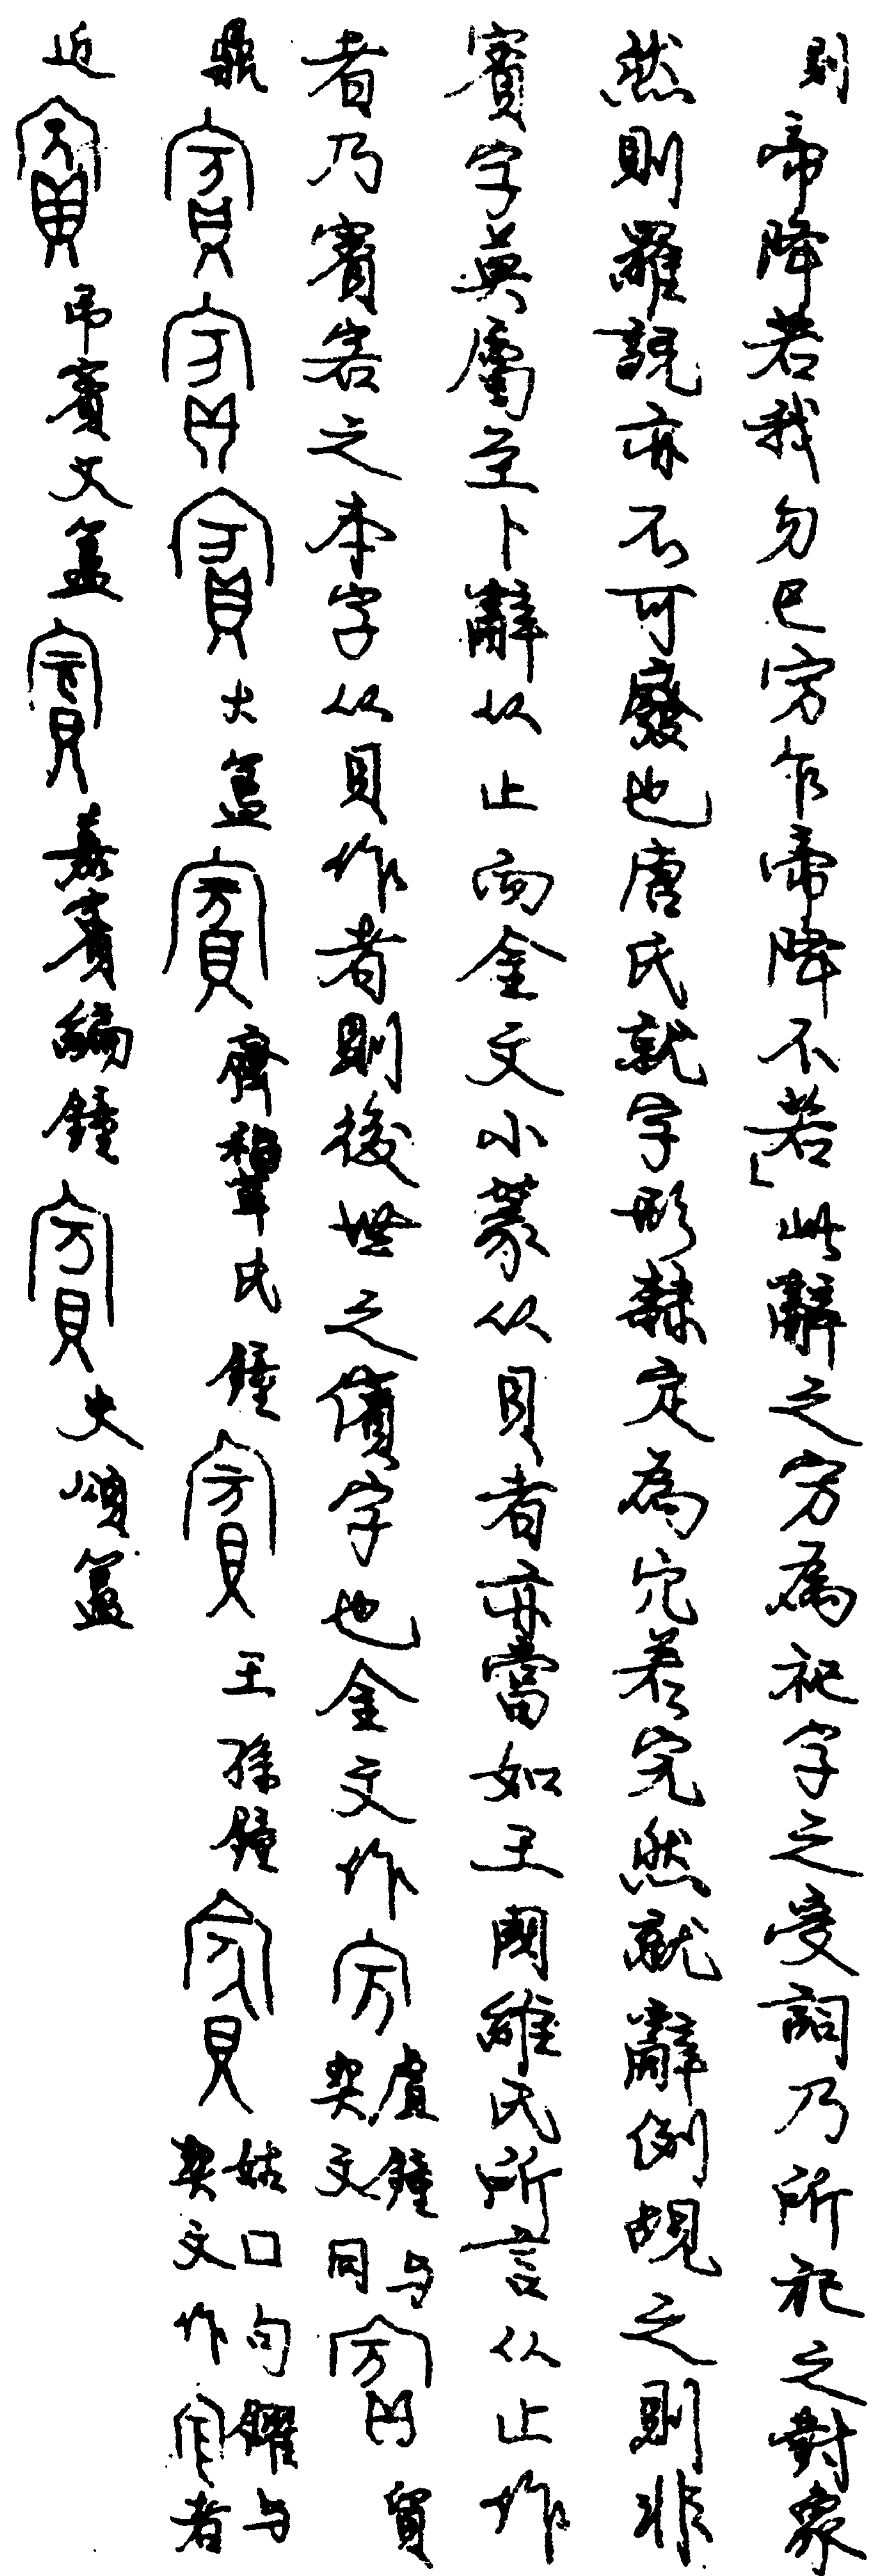 則帝降若我勿巳㝑乍帝降不若」此辭之㝑為祀字之受詞乃所祀之對象
然則羅說亦不可廢也唐氏就字形隸定為宂若完然就辭例覘之則非
賓字莫屬至卜辭从止而金文小篆从貝者亦當如王國維氏所言从止作
者乃賓客之本字从貝作者則後世之儐字也金文作㝑虘鐘与契文同賓貿
鼎賓賓賓大簋賓齊鞄氏鐘賓王孫鐘賓姑口句鑃与契文作㝐者
近賓弔賓父簋賓嘉賓編鐘賓史頌簋